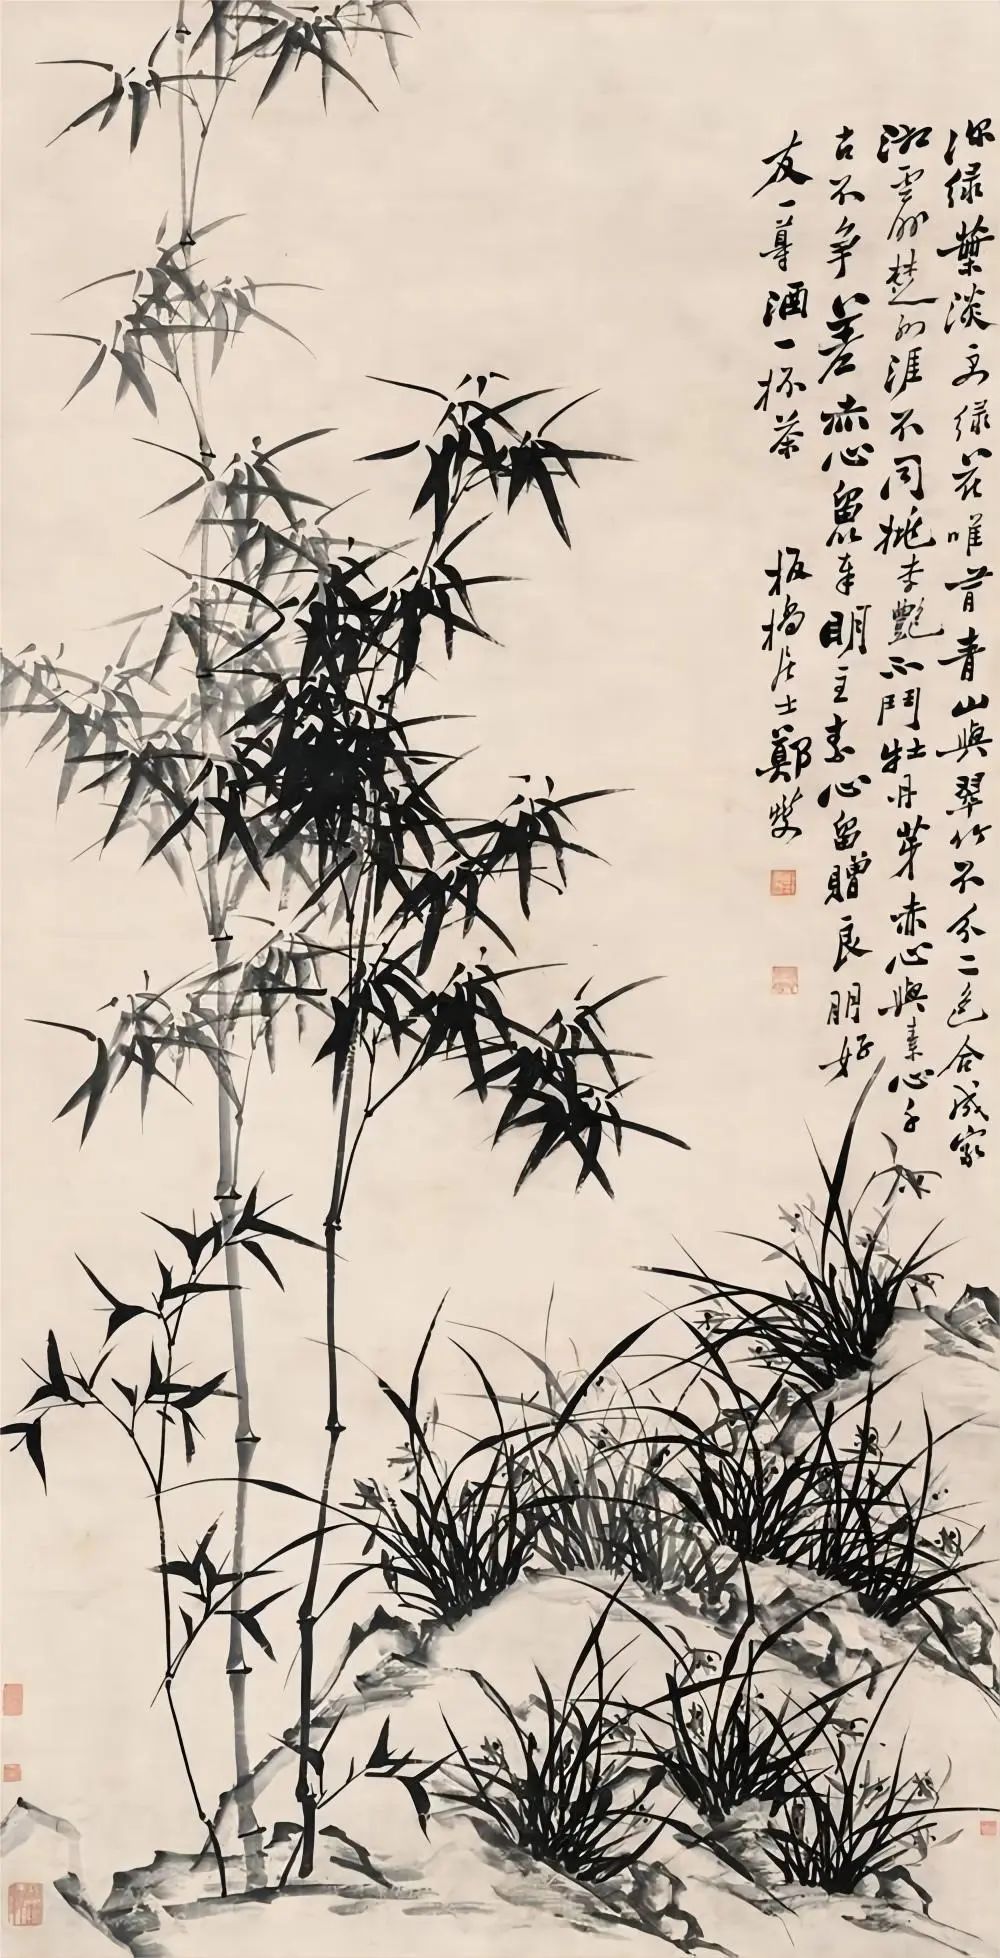 深緑葉淡緑花唯青山與翠竹不分二色合成家
湘雲楚涯不同桃李艷不鬥牡丹芽赤心與素心千
古不爭差赤心留奉明主素心留贈良朋好
友一尊酒一杯茶
板橋居士鄭燮